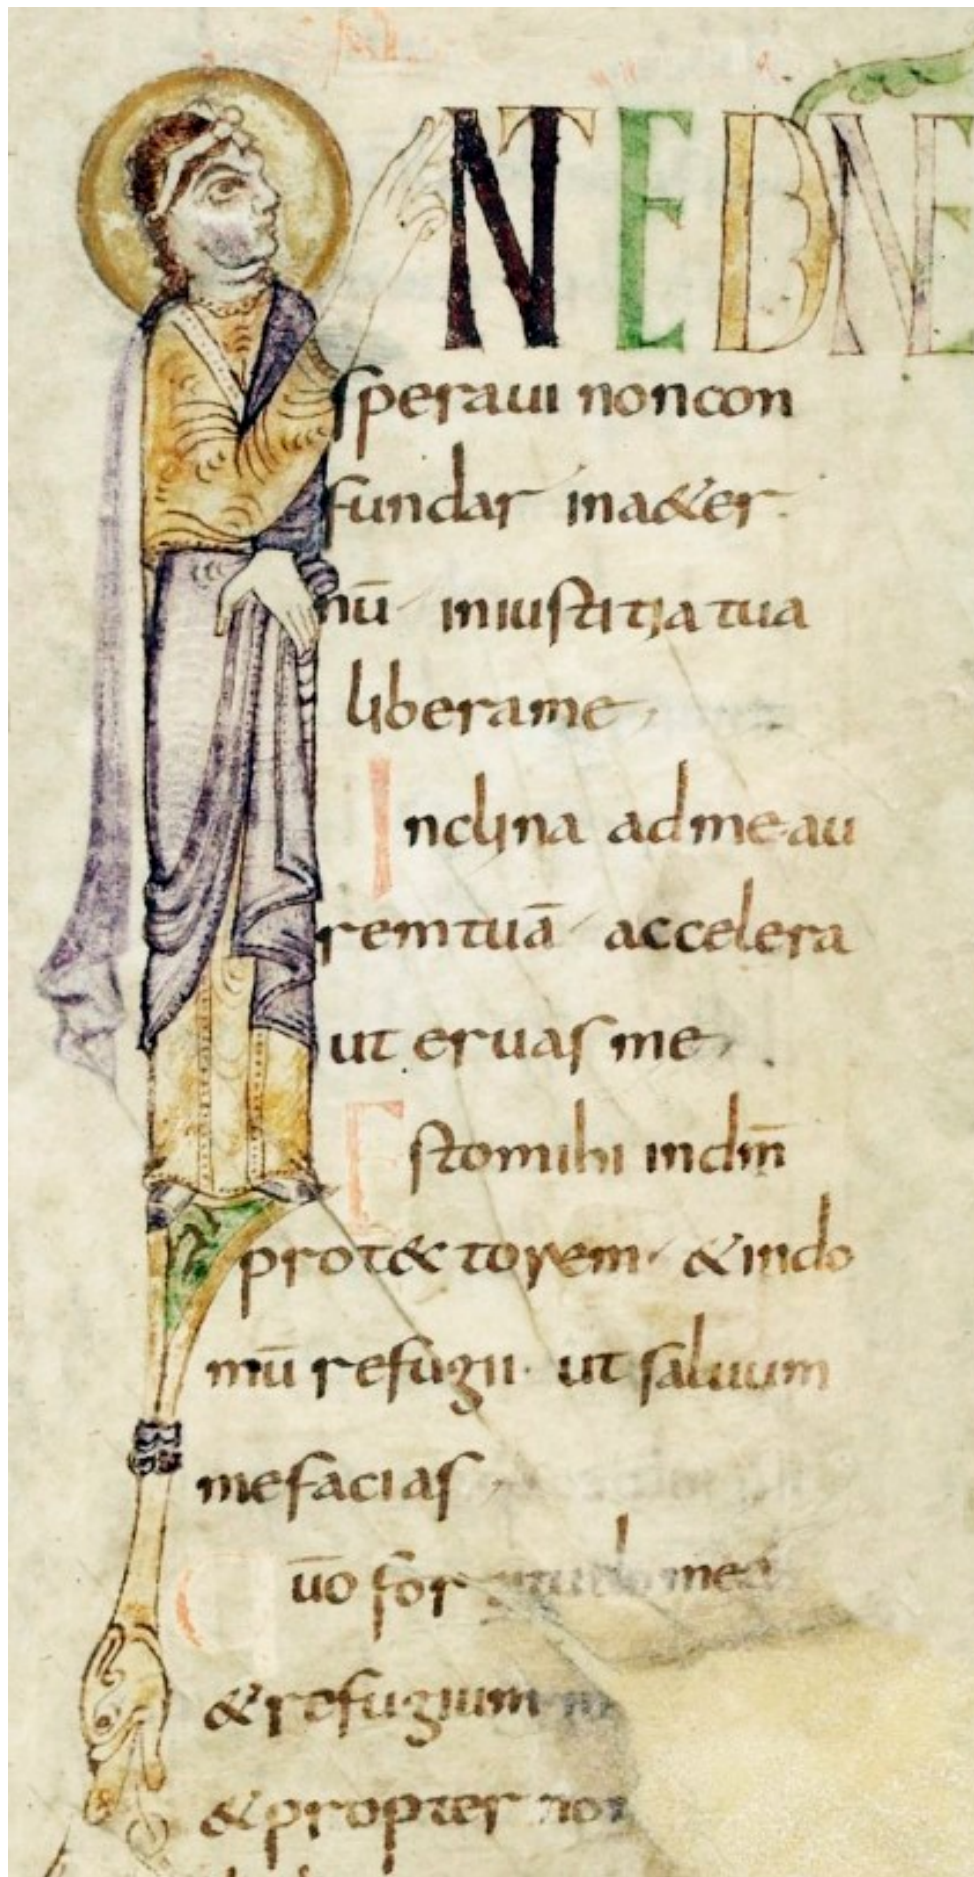 NTEDNE
speraui noncon
fundar ina&er
nū iniustitia tua
liberame
Inclina admeau
remtuā accelera
ut eruas me
Estomihi indm̄
prot&torem & indo
mū refugii ut saluum
mefacias
Qūo for mea
&refugium
&propter